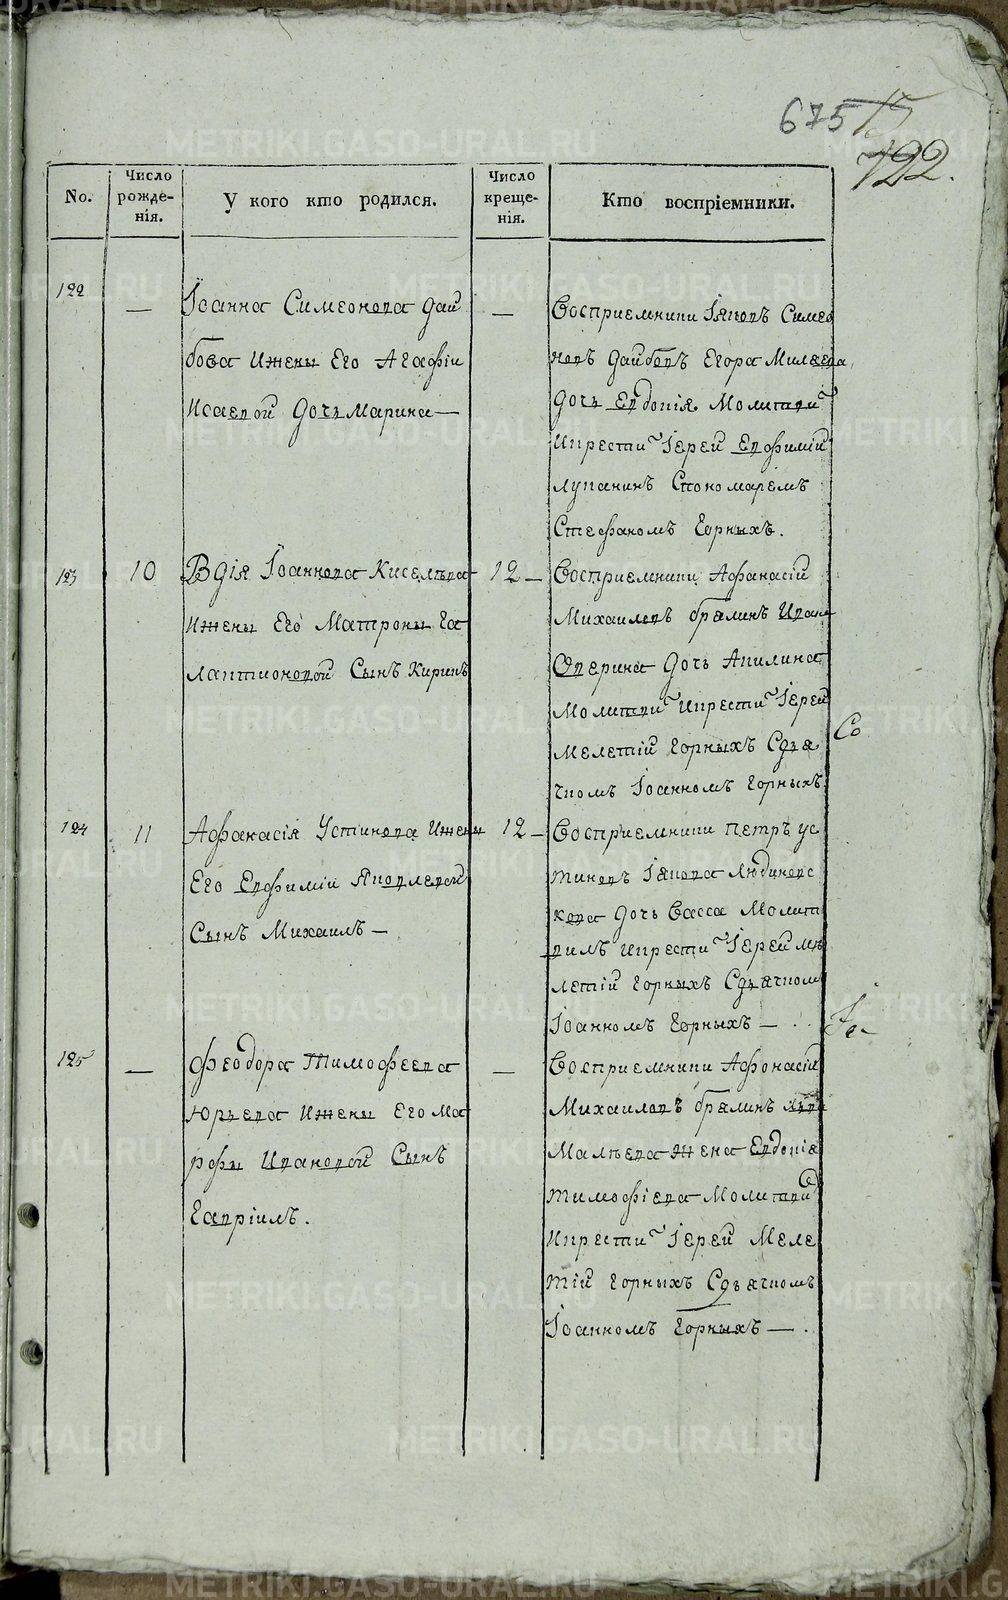 675
122.
No.
Число рожде-нія.
У кого кто родился.
Число креще-нія.
Кто воспріемники.
122
—
Іоанна Симеонова Дай
бова Ижены Его Агафіи
Исаевой Дочь Марина —
—
Восприемники Іяковъ Симео
новъ Дайбовъ Егора
Дочь Евдокія Молитви
Икрести Іерей Евфимій
Лупанинъ Спономаремъ
Стефаномъ Горныхъ.
123
10
Іоаннова Киселева
Ижены Его Матроны Га
лактионовой Сынъ Кирикъ
12 —
Восприемники Афанасій
Михаиловъ Бралинъ Ивана
Аверина Дочь Акилина
Молитви Икрести Іерей
Мелетій Горныхъ Сдья
чкомъ Іоанномъ Горныхъ
Со
124
11
Афанасія Устинова Ижены
Его Евфиміи Яковлевой
Сынъ Михаилъ —
12 —
Восприемники Петръ Ус
тиновъ Іякова Людиновс
кова Дочь Васса Молит
вилъ Икрести Іерей Ме
летій Горныхъ Сдьячком
Іоанномъ Горныхъ — .
125
—
Феодора Тимофеева
Юрьева Ижены Его Ма
рфы Ивановой Сынъ
Гавріилъ.
—
Восприемники Афонасій
Михаиловъ Бралинъ
Малѣева Жена Евдокія
Тимофіева Молитви
Икрести Іерей Меле
тій Горныхъ Сдьячкомъ
Іоанномъ Горныхъ — .
METRIKI.GASO-URAL.RU